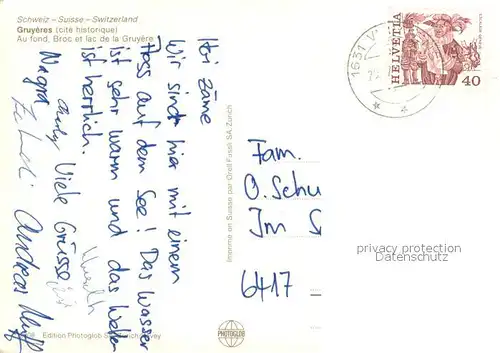 Schweiz – Suisse – Switzerland
Gruyères (cité historique)
Au fond, Broc et lac de la Gruyère
Hoi zäme
Wir sind hier mit einem
Floss auf dem See! Das Wasser
ist sehr warm und das Wetter
ist herrlich.
Viele Grüsse
Andreas
Imprimé en Suisse par Orell Füssli SA, Zurich
Edition Photoglob
PHOTOGLOB
1631
HELVETIA
40
Fam.
O. Schu
Im S
6417
privacy protection
Datenschutz